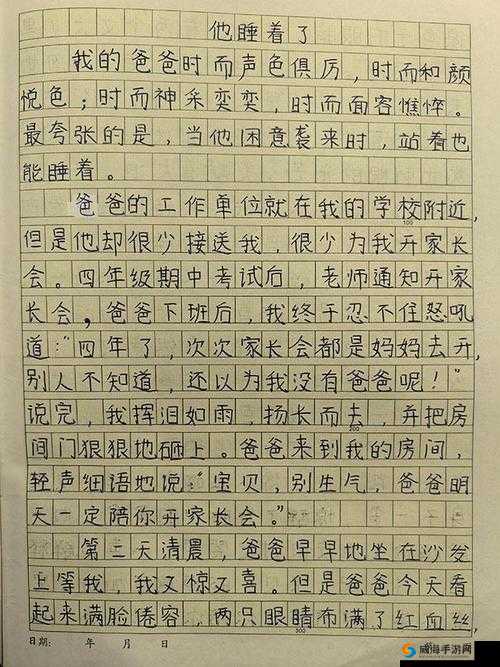 他睡着了
我的爸爸时而声色俱厉，时而和颜
悦色；时而神采奕奕，时而面容憔悴。
最夸张的是，当他困意袭来时，站着也
能睡着。
爸爸的工作单位就在我的学校附近，
100
但是他却很少接送我，很少为我开家长
会。四年级期中考试后，老师通知开家
长会，爸爸下班后，我终于忍不住怒吼
道：“四年了，次次家长会都是妈妈去开，
别人不知道，还以为我没有爸爸呢！”
说完，我挥泪如雨，扬长而去，并把房
200
间门狠狠地砸上。爸爸来到我的房间，
轻声细语地说：“宝贝，别生气，爸爸明
天一定陪你开家长会。”
第二天清晨，爸爸早早地坐在沙发
上等我，我又惊又喜。但是爸爸今天看
起来满脸倦容，两只眼睛布满了红血丝，
300
日期： 年 月 日
威海手游网